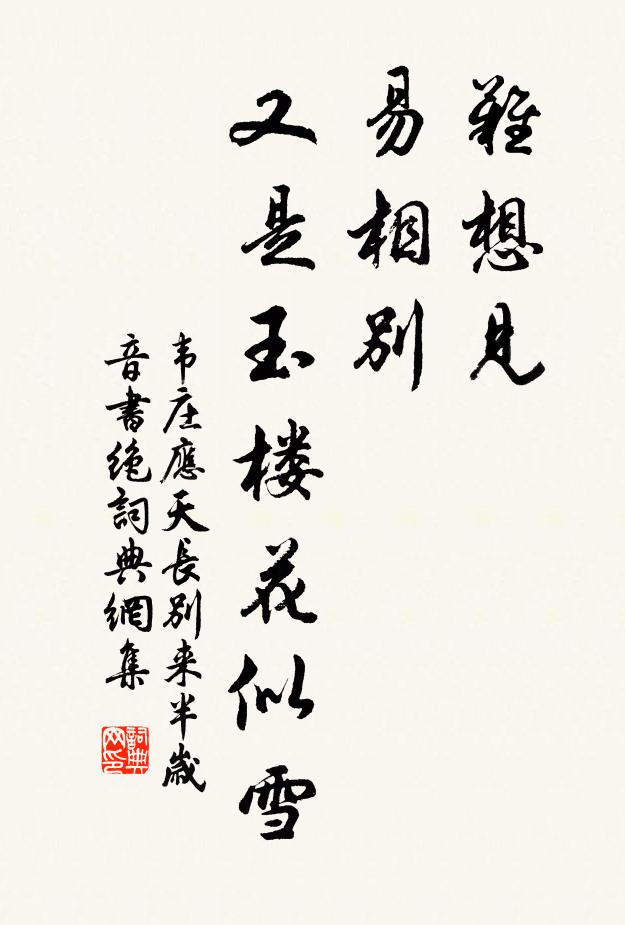 難想見
易相別
又是玉楼花似雪
韦庄應天長別来半歲
音書绝詞典網集
詞典网印